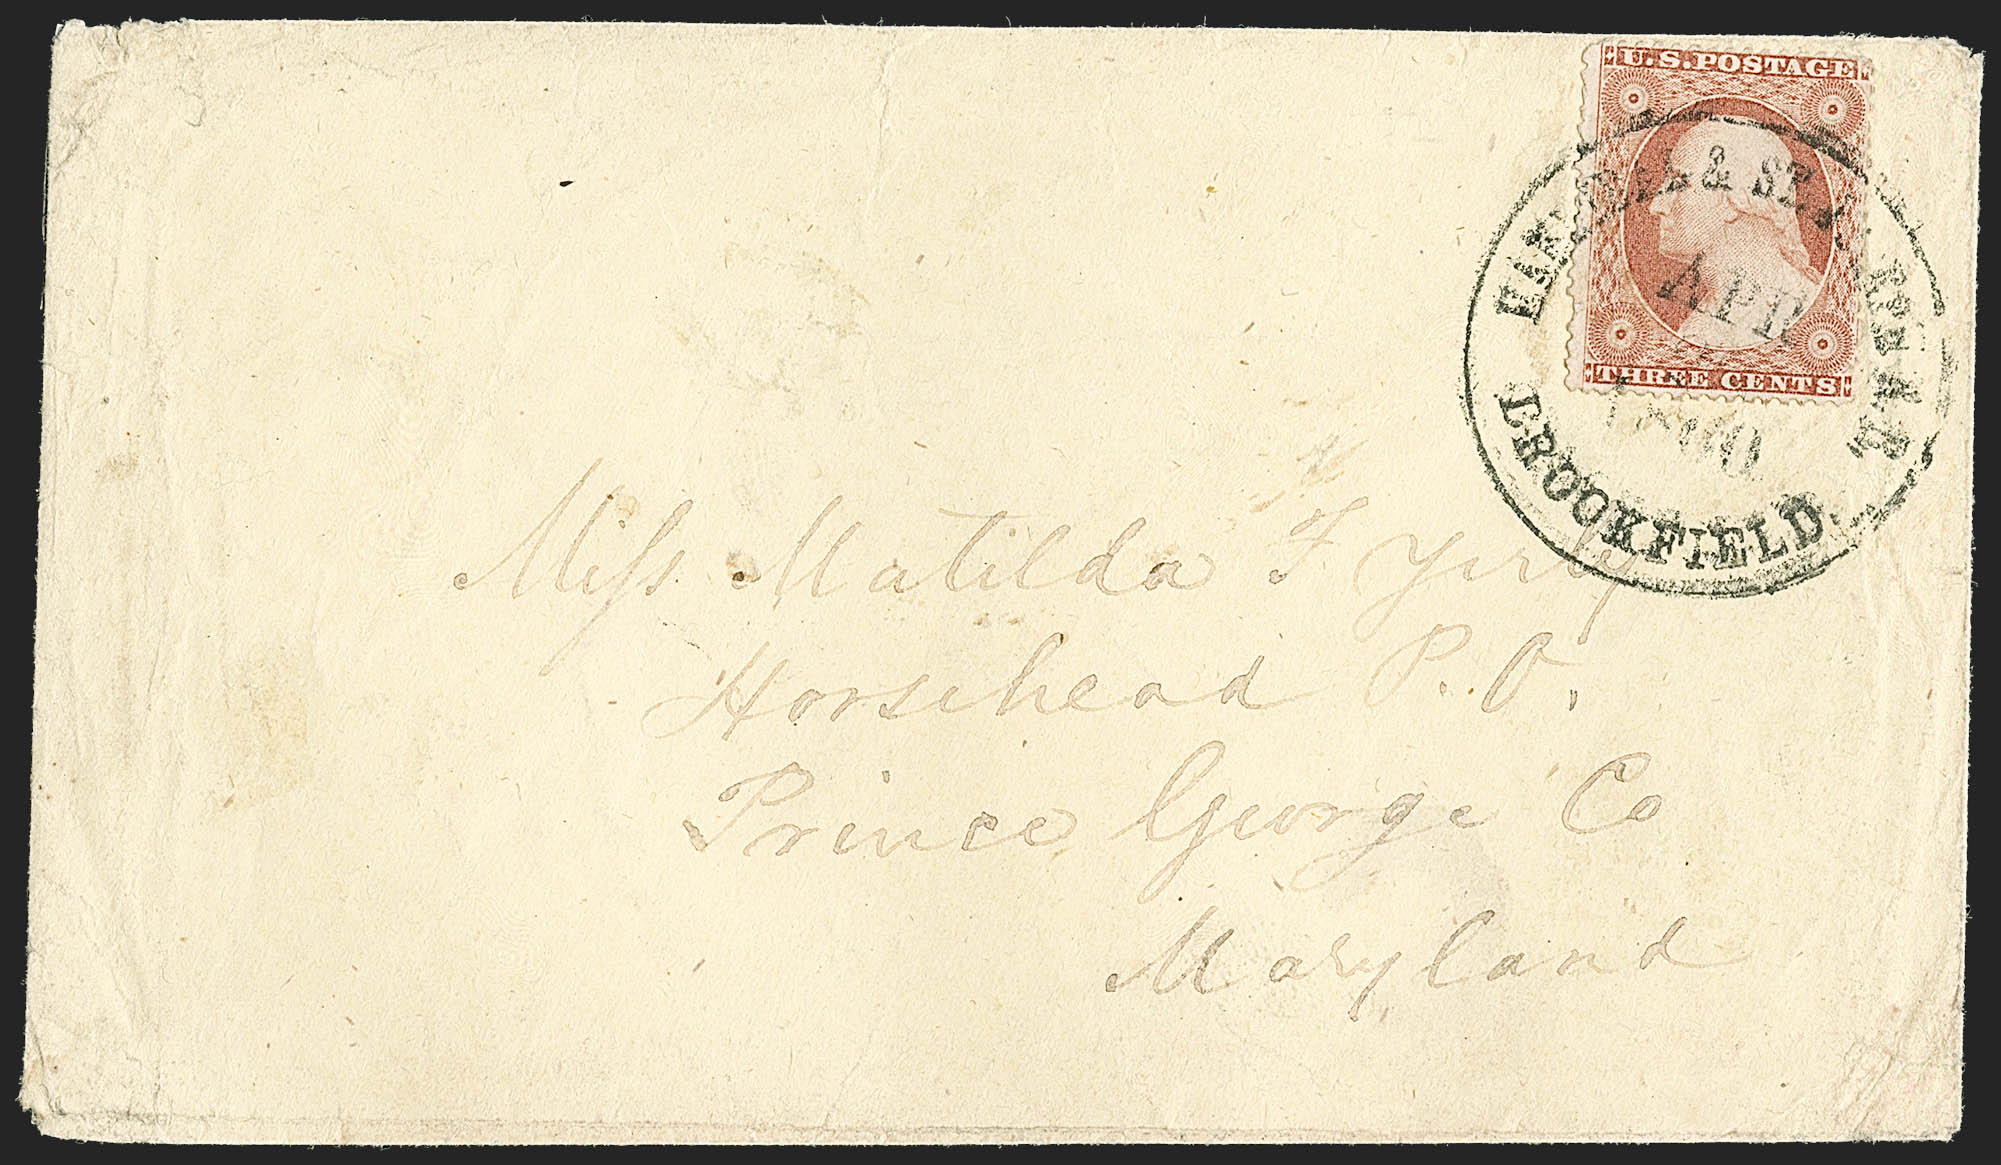 U.S. POSTAGE
THREE CENTS
& ST.
APR
1860
BROOKFIELD
Miss Matilda F Yerby
Horsehead P.O.
Prince George Co
Maryland